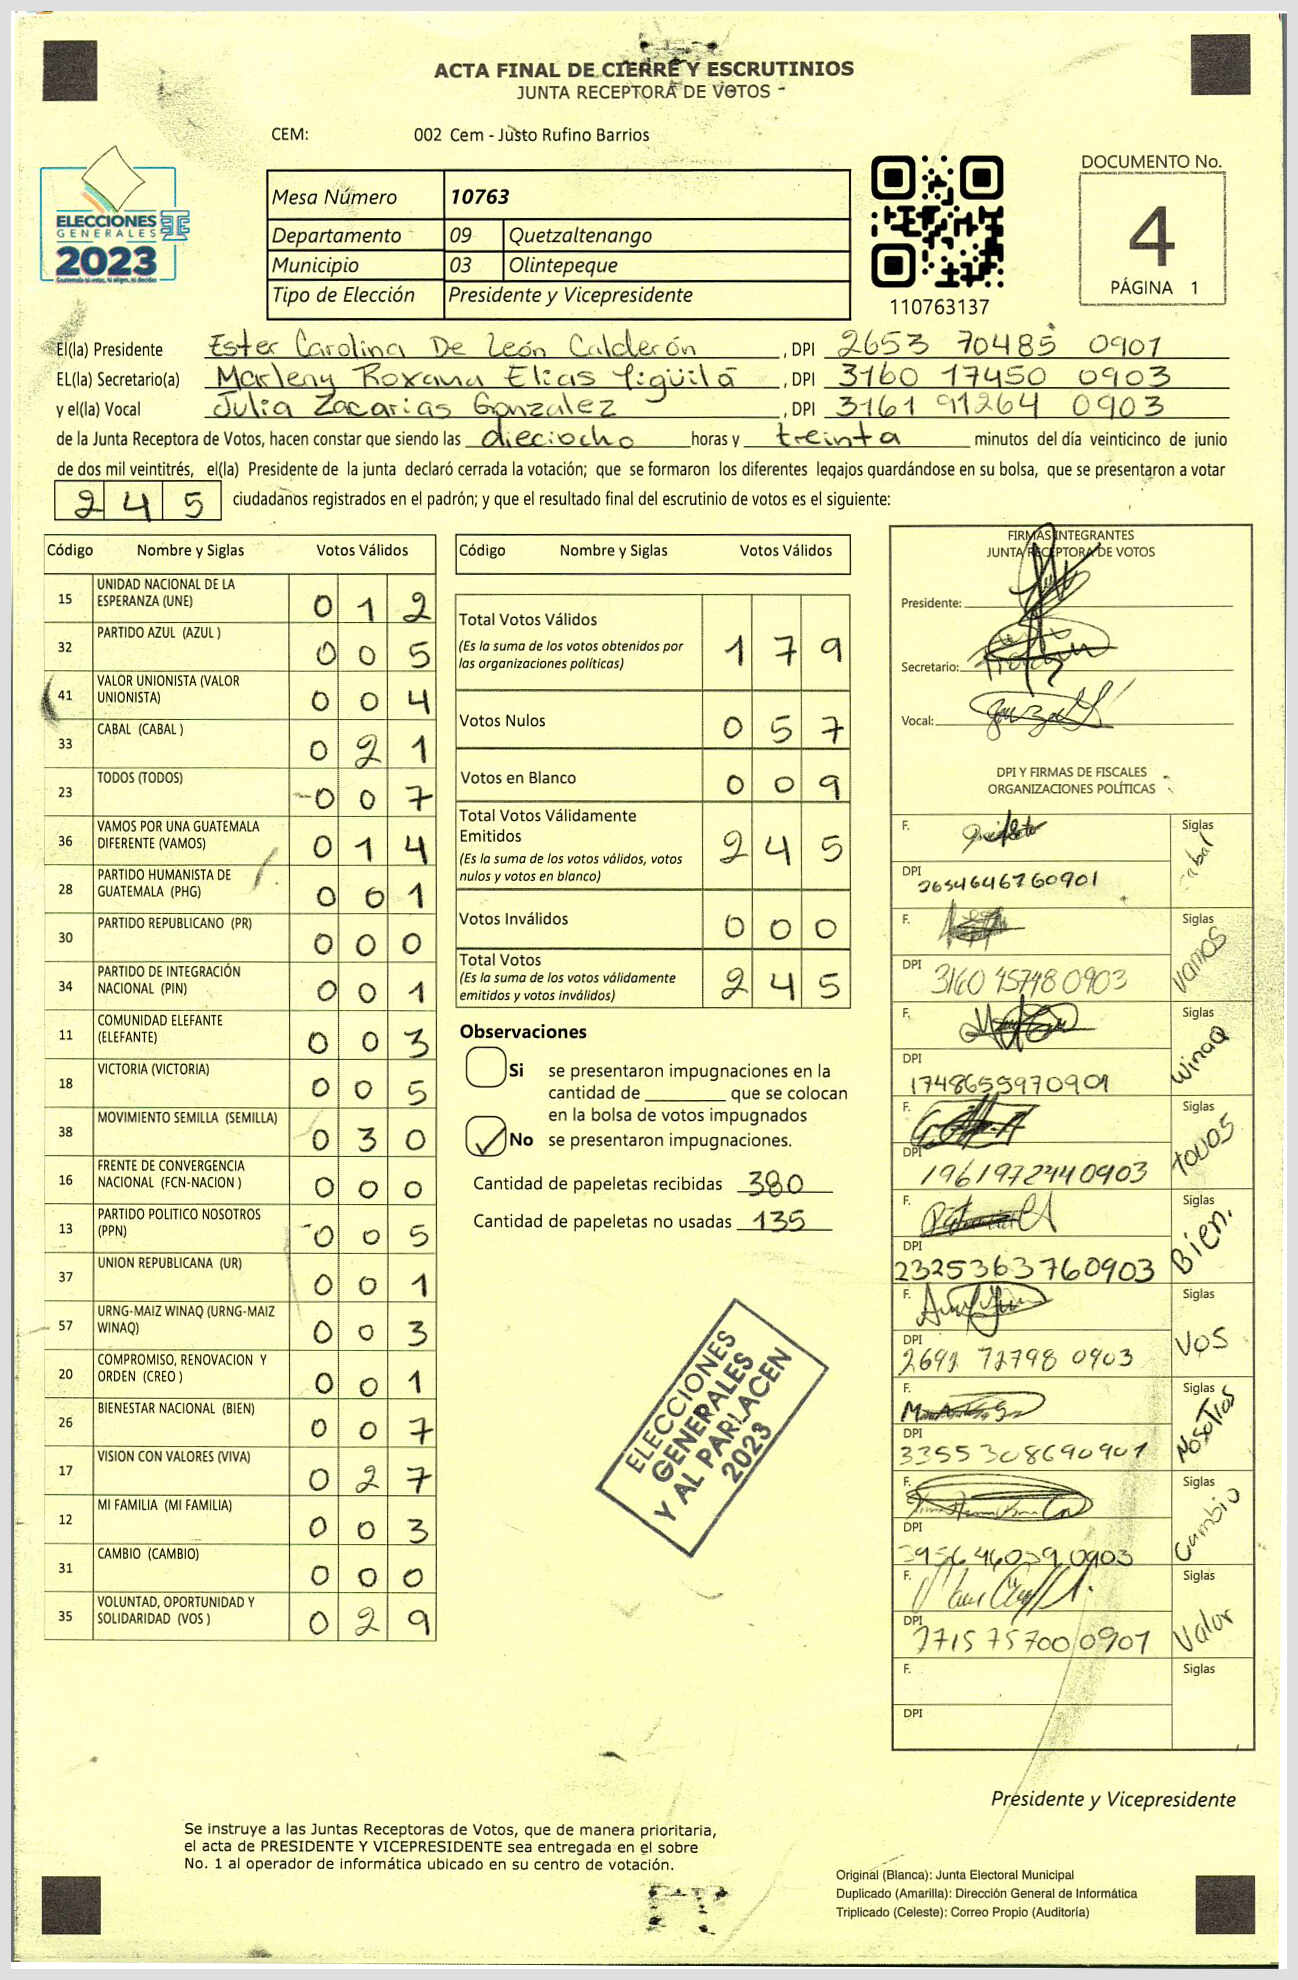 ACTA FINAL DE CIERRE Y ESCRUTINIOS
JUNTA RECEPTORA DE VOTOS
CEM: 002 Cem - Justo Rufino Barrios
ELECCIONES
GENERALES
2023
Mesa Número 10763
Departamento 09 Quetzaltenango
Municipio 03 Olintepeque
Tipo de Elección Presidente y Vicepresidente
110763137
DOCUMENTO No.
4
PÁGINA 1
El(la) Presidente Ester Carolina De León Calderón , DPI 2653 70485 0901
EL(la) Secretario(a) Marleny Roxana Elias , DPI 3160 17450 0903
y el(la) Vocal Julia Zacarias Gonzalez , DPI 3161 91264 0903
de la Junta Receptora de Votos, hacen constar que siendo las dieciocho horas y treinta minutos del día veinticinco de junio
de dos mil veintitrés, el(la) Presidente de la junta declaró cerrada la votación; que se formaron los diferentes legajos guardándose en su bolsa, que se presentaron a votar
245 ciudadanos registrados en el padrón; y que el resultado final del escrutinio de votos es el siguiente:
Código Nombre y Siglas Votos Válidos
15 UNIDAD NACIONAL DE LA ESPERANZA (UNE) 012
32 PARTIDO AZUL (AZUL ) 005
41 VALOR UNIONISTA (VALOR UNIONISTA) 004
33 CABAL (CABAL ) 021
23 TODOS (TODOS) 007
36 VAMOS POR UNA GUATEMALA DIFERENTE (VAMOS) 014
28 PARTIDO HUMANISTA DE GUATEMALA (PHG) 001
30 PARTIDO REPUBLICANO (PR) 000
34 PARTIDO DE INTEGRACIÓN NACIONAL (PIN) 001
11 COMUNIDAD ELEFANTE (ELEFANTE) 003
18 VICTORIA (VICTORIA) 005
38 MOVIMIENTO SEMILLA (SEMILLA) 030
16 FRENTE DE CONVERGENCIA NACIONAL (FCN-NACION ) 000
13 PARTIDO POLITICO NOSOTROS (PPN) 005
37 UNION REPUBLICANA (UR) 001
57 URNG-MAIZ WINAQ (URNG-MAIZ WINAQ) 003
20 COMPROMISO, RENOVACION Y ORDEN (CREO ) 001
26 BIENESTAR NACIONAL (BIEN) 007
17 VISION CON VALORES (VIVA) 027
12 MI FAMILIA (MI FAMILIA) 003
31 CAMBIO (CAMBIO) 000
35 VOLUNTAD, OPORTUNIDAD Y SOLIDARIDAD (VOS ) 029
Código Nombre y Siglas Votos Válidos
Total Votos Válidos 179
(Es la suma de los votos obtenidos por
las organizaciones políticas)
Votos Nulos 057
Votos en Blanco 009
Total Votos Válidamente
Emitidos 245
(Es la suma de los votos válidos, votos
nulos y votos en blanco)
Votos Inválidos 000
Total Votos 245
(Es la suma de los votos válidamente
emitidos y votos inválidos)
Observaciones
Si se presentaron impugnaciones en la
cantidad de ________ que se colocan
en la bolsa de votos impugnados
No se presentaron impugnaciones.
Cantidad de papeletas recibidas 380
Cantidad de papeletas no usadas 135
ELECCIONES
GENERALES
Y AL PARLACEN
2023
FIRMAS INTEGRANTES
JUNTA RECEPTORA DE VOTOS
Presidente:
Secretario:
Vocal:
DPI Y FIRMAS DE FISCALES
ORGANIZACIONES POLÍTICAS
F. Siglas Cabal
DPI 2654646760901
F. Siglas VAMOS
DPI 3160 45748 0903
F. Siglas Winaq
DPI 1748655970901
F. Siglas TODOS
DPI 1961972440903
F. Siglas Bien.
DPI 2325363760903
F. Siglas VOS
DPI 2692 72798 0903
F. Siglas NosoTros
DPI 3355308690901
F. Siglas Cambio
DPI
F. Siglas Valor
DPI 75700 0901
F. Siglas
DPI
Presidente y Vicepresidente
Se instruye a las Juntas Receptoras de Votos, que de manera prioritaria,
el acta de PRESIDENTE Y VICEPRESIDENTE sea entregada en el sobre
No. 1 al operador de informática ubicado en su centro de votación.
Original (Blanca): Junta Electoral Municipal
Duplicado (Amarilla): Dirección General de Informática
Triplicado (Celeste): Correo Propio (Auditoría)